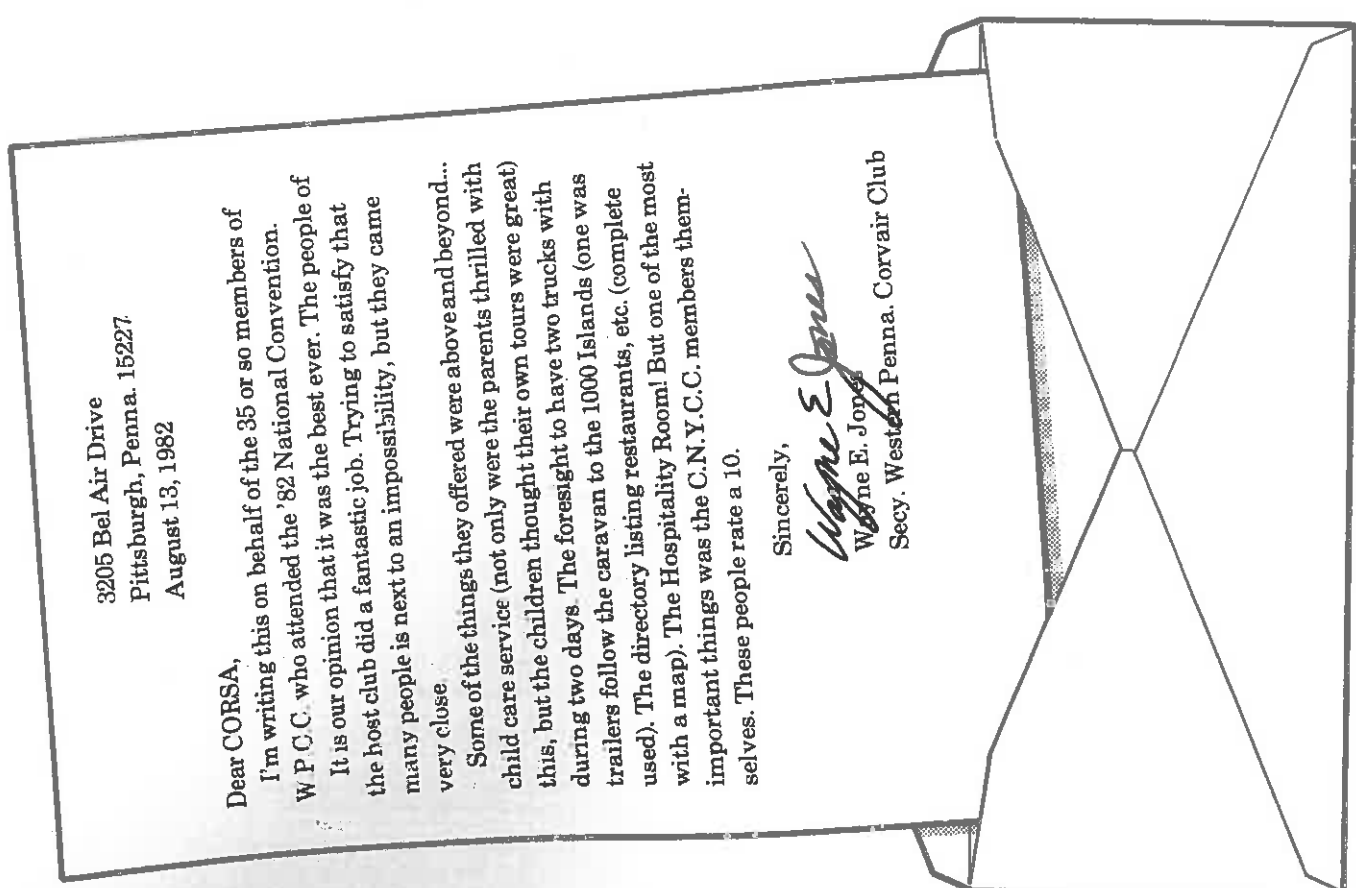 3205 Bel Air Drive
Pittsburgh, Penna. 15227
August 13, 1982
Dear CORSA,
I'm writing this on behalf of the 35 or so members of
W.P.C.C. who attended the '82 National Convention.
It is our opinion that it was the best ever. The people of
the host club did a fantastic job. Trying to satisfy that
many people is next to an impossibility, but they came
very close.
Some of the things they offered were above and beyond...
child care service (not only were the parents thrilled with
this, but the children thought their own tours were great)
during two days. The foresight to have two trucks with
trailers follow the caravan to the 1000 Islands (one was
used). The directory listing restaurants, etc. (complete
with a map). The Hospitality Room! But one of the most
important things was the C.N.Y.C.C. members them-
selves. These people rate a 10.
Sincerely,
Wayne E Jones
Wayne E. Jones
Secy. Western Penna. Corvair Club